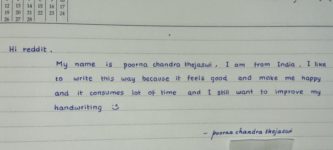 12 13 14 15 16 17 18
19 20 21 22 23 24 25
26 27 28
Hi reddit,
My name is poorna chandra thejaswi, I am from India, I like
to write this way because it feels good and make me happy
and it consumes lot of time and I still want to improve my
handwriting
- poorna chandra thejaswi